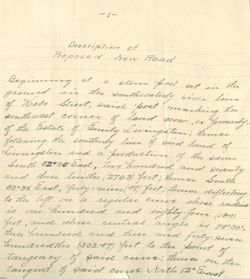 -1-
Description of
Proposed New Road
Beginning at a stone post set in the
ground in the southwesterly side line
of Hobs Street, said post marking the
southwest corner of land now, or formerly,
of the Estate of Emily Livingston; thence
following the southerly line of said land of
Livingston and a production of the same
South 52°30' East, two hundred and seventy
and three tenths (270.3) feet, thence South
East, forty-nine, 49 feet, thence deflecting
to the left on a regular curve whose radius
is one hundred and eighty four (184)
feet, and whose central angle is 94°30',
three hundred and three and forty-seven
hundredths (303.47) feet to the point of
tangency of said curve; thence on the
tangent of said curve North 12° East